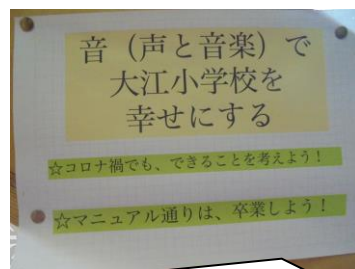 音（声と音楽）で
大江小学校を
幸せにする
☆コロナ禍でも、できることを考えよう！
☆マニュアル通りは、卒業しよう！